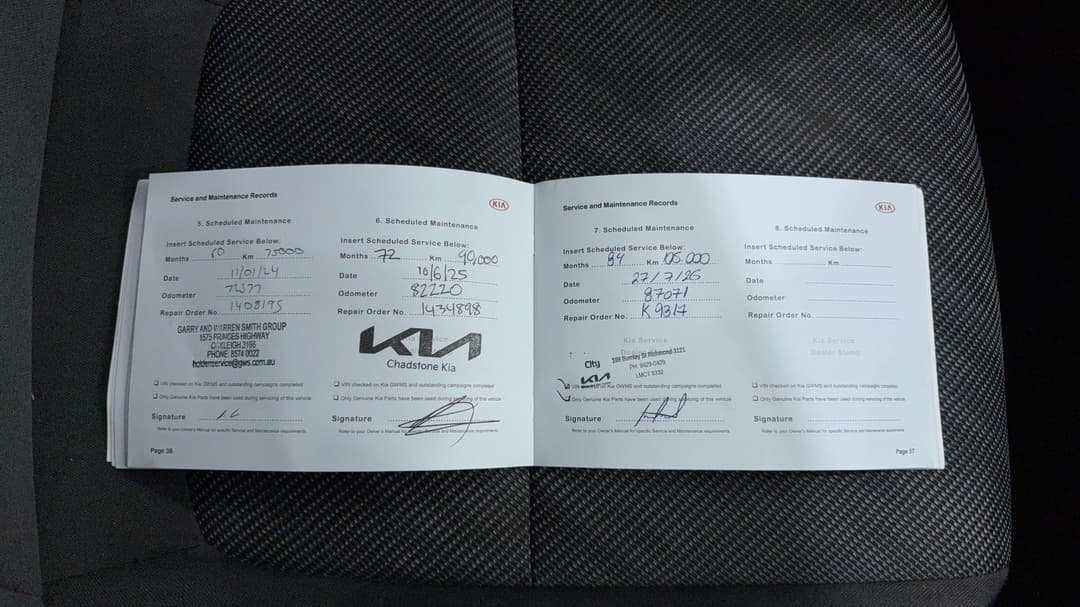 Service and Maintenance Records
KIA
5. Scheduled Maintenance
Insert Scheduled Service Below:
Months 60 Km 75000
Date 11/01/24
Odometer
Repair Order No. 1408195
GARRY AND WARREN SMITH GROUP
1575 PRINCES HIGHWAY
OAKLEIGH 3166
PHONE: 8574 0022
holdenservice@gws.com.au
VIN checked on Kia GWMS and outstanding campaigns completed
Only Genuine Kia Parts have been used during servicing of this vehicle
Signature
Refer to your Owner's Manual for specific Service and Maintenance requirements
Page 36
6. Scheduled Maintenance
Insert Scheduled Service Below:
Months 72 Km 90,000
Date 10/6/25
Odometer 82220
Repair Order No. 1434898
KIA
Chadstone Kia
VIN checked on Kia GWMS and outstanding campaigns completed
Only Genuine Kia Parts have been used during servicing of this vehicle
Signature
Refer to your Owner's Manual for specific Service and Maintenance requirements
Service and Maintenance Records
KIA
7. Scheduled Maintenance
Insert Scheduled Service Below:
Months 84 Km 105.000
Date 27/7/26
Odometer 87071
Repair Order No. K9317
Kia Service
City
KIA
398 Burnley St Richmond 3121
PH: 9429-0429
LMCT 9332
VIN checked on Kia GWMS and outstanding campaigns completed
Only Genuine Kia Parts have been used during servicing of this vehicle
Signature
Refer to your Owner's Manual for specific Service and Maintenance requirements
8. Scheduled Maintenance
Insert Scheduled Service Below:
Months Km
Date
Odometer
Repair Order No.
Kia Service
Dealer Stamp
VIN checked on Kia GWMS and outstanding campaigns completed
Only Genuine Kia Parts have been used during servicing of this vehicle
Signature
Refer to your Owner's Manual for specific Service and Maintenance requirements
Page 37